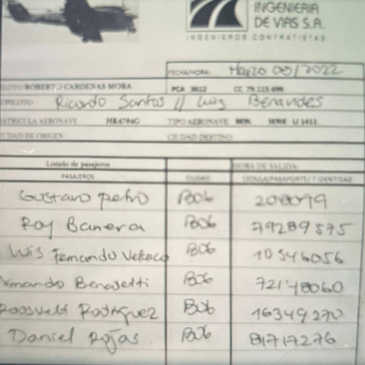 INGENIERIA
DE VIAS S.A.
INGENIEROS CONTRATISTAS
FECHA/HORA: Marzo 05/2022
PILOTO ROBERTO CARDENAS MORA PCA 3612 CC 79.125.696
COPILOTO Ricardo Santos // Luis Benavides
MATRICULA AERONAVE HK4704G TIPO AERONAVE SERIE LJ 1411
CIUDAD DE ORIGEN CIUDAD DESTINO
Listado de pasajeros HORA DE SALIDA:
PASAJEROS CIUDAD CEDULA/PASAPORTE/T IDENTIDAD
Gustavo petro BOG 208079
Roy Barrera BOG 79289575
Luis Fernando Velasco BOG 10546056
Armando Benedetti BOG 72148060
Roosvelt Rodriguez BOG 16349270
Daniel Rojas BOG 81717276